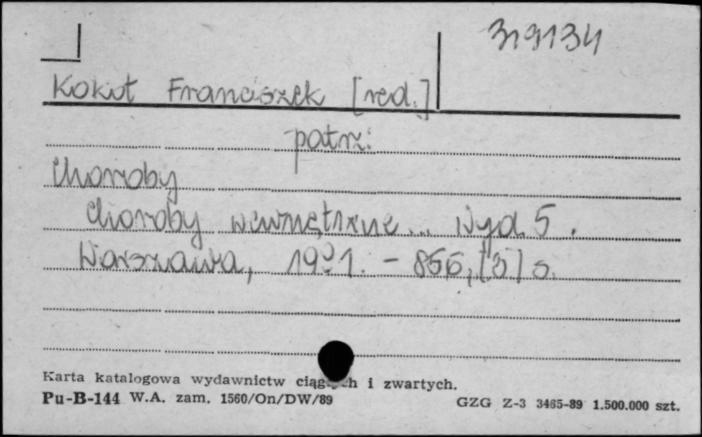 319134
Kokot Franciszek [red.]
patrz:
Choroby
Choroby wewnętrzne... Wyd. 5.
Warszawa, 1991. - 855, [3] s.
Karta katalogowa wydawnictw ciągłych i zwartych.
Pu-B-144 W.A. zam. 1560/On/DW/89
GZG Z-3 3465-89 1.500.000 szt.